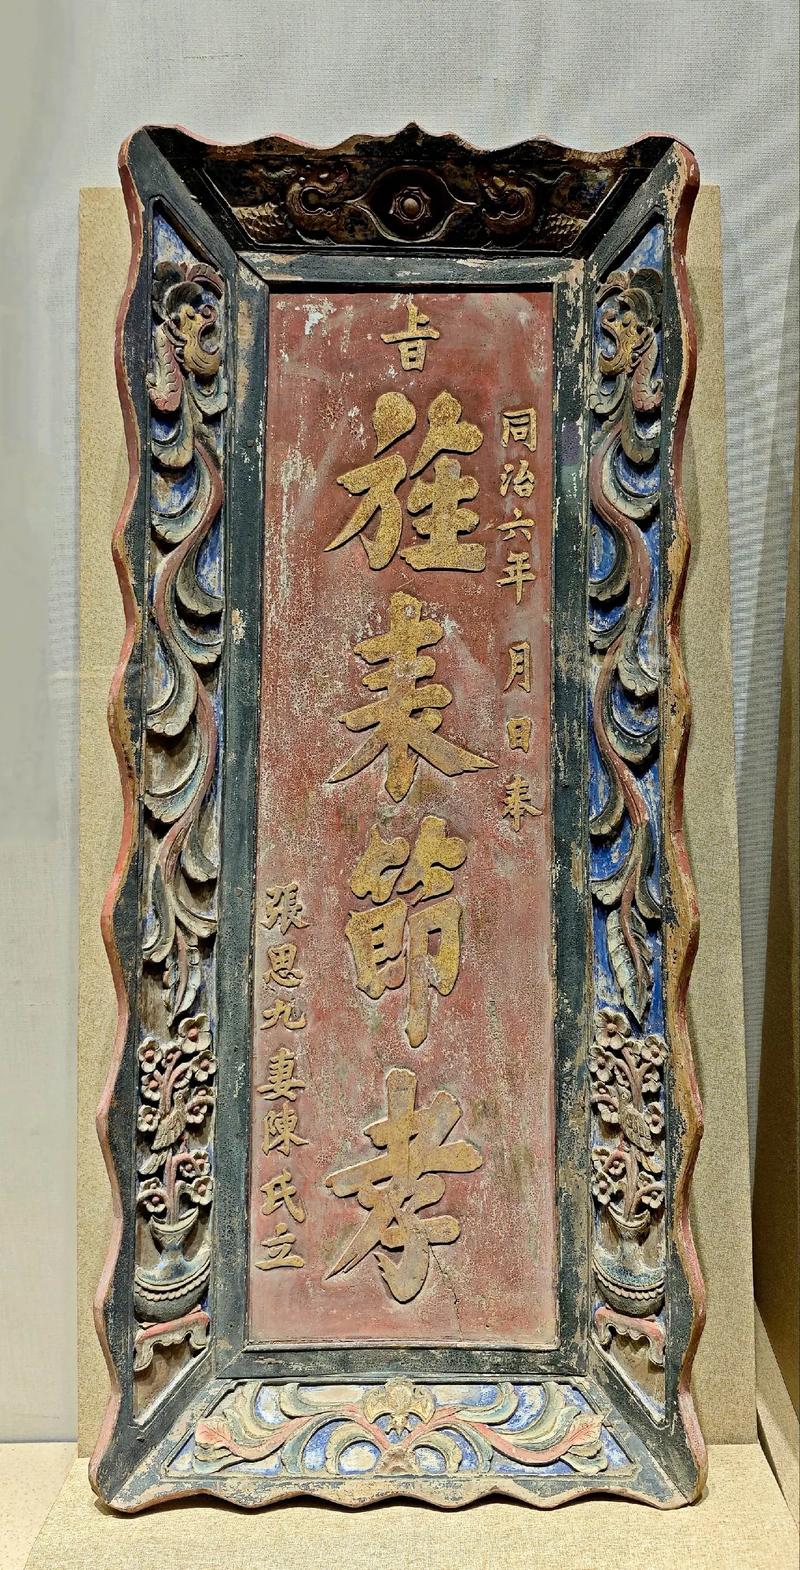 同治六年 月 日奉
旨
旌表節孝
張思九妻陳氏立